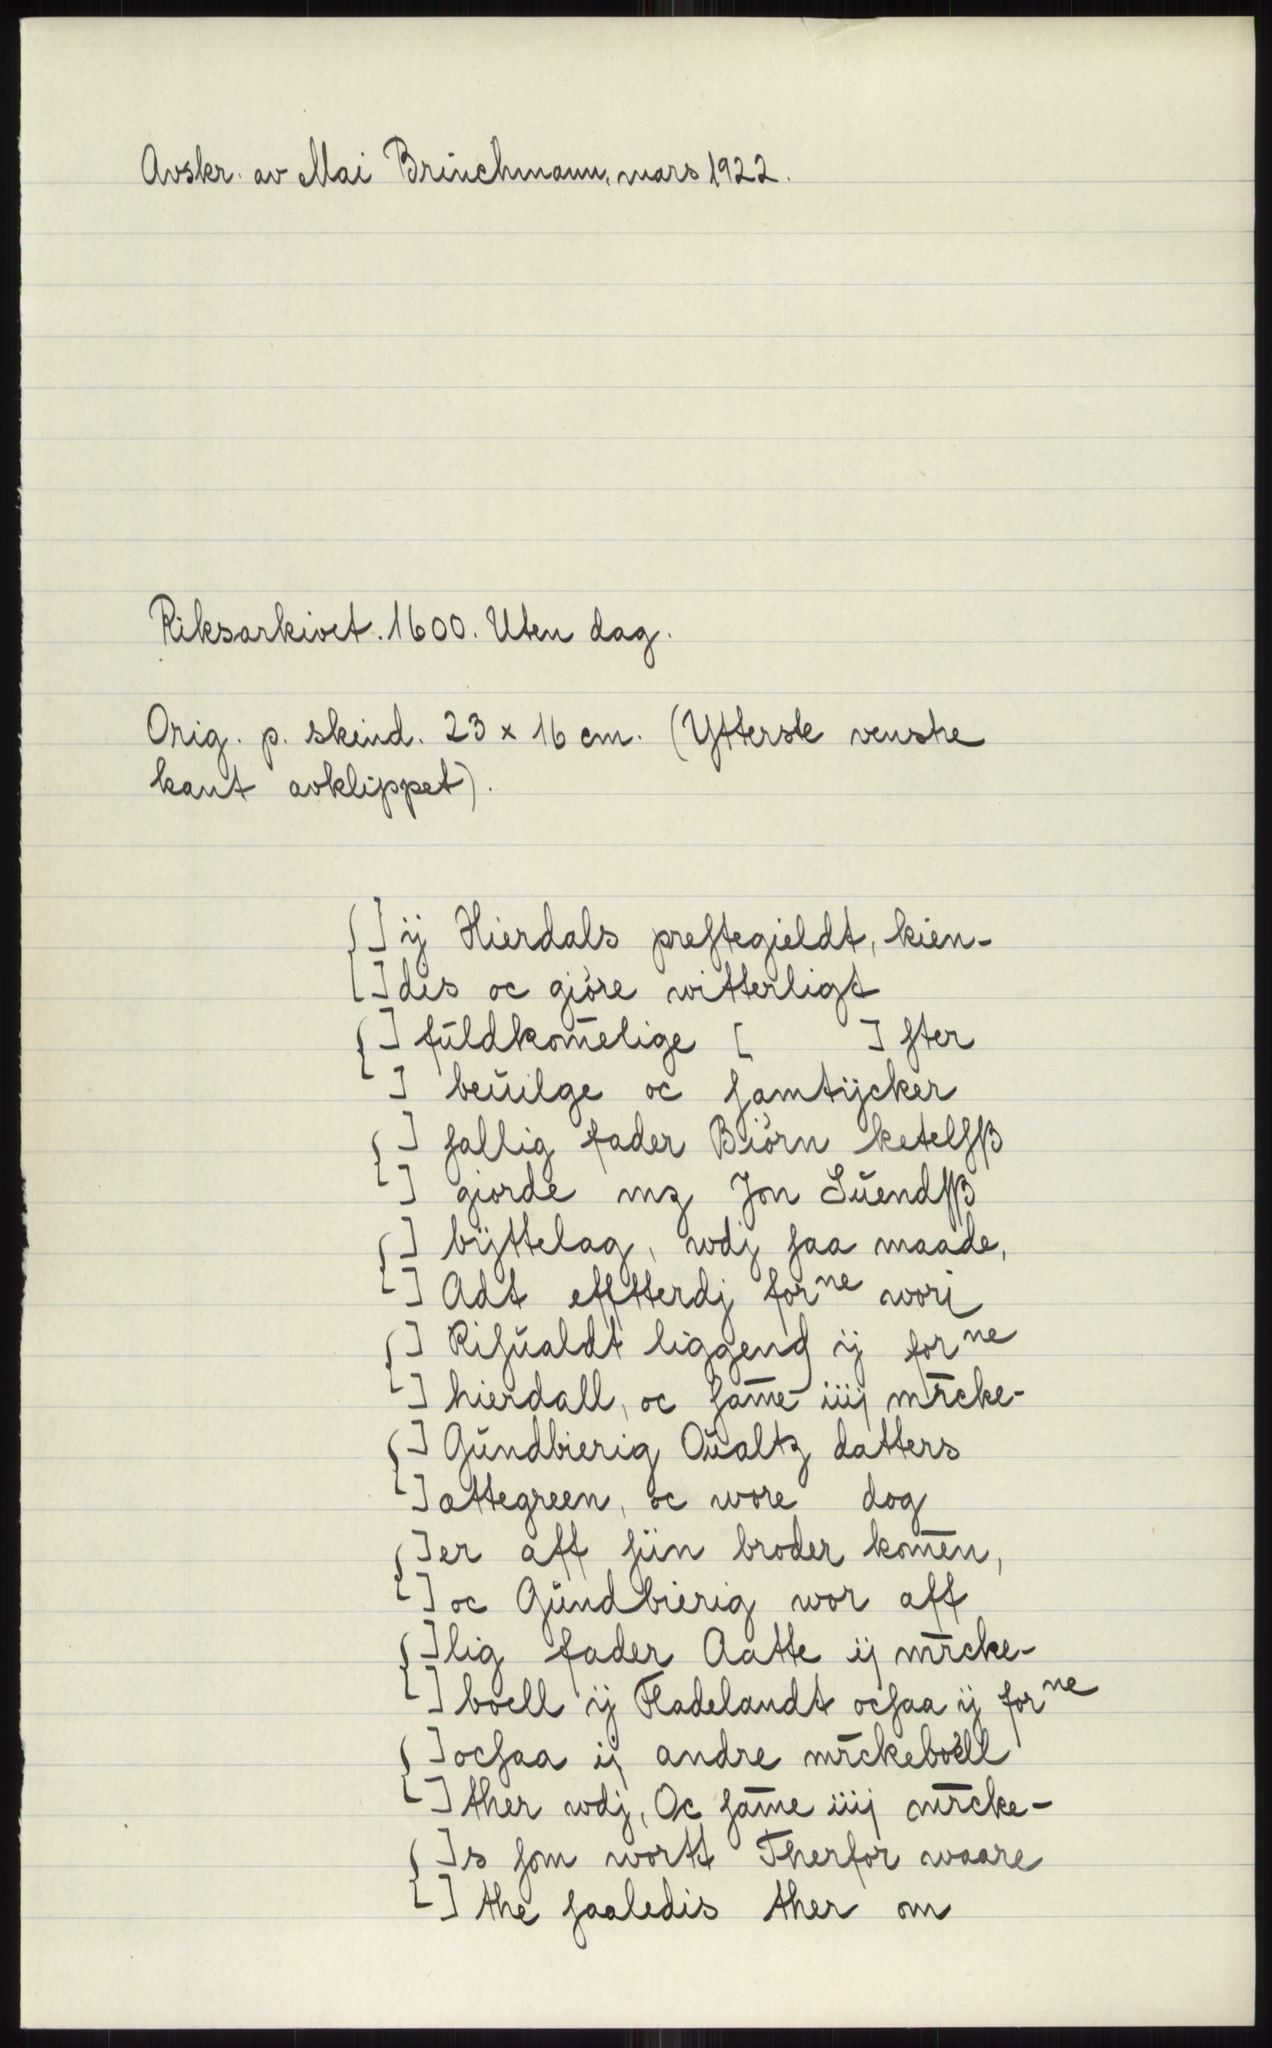 Avskr. av Mai Brinchmann, mars 1922.
Riksarkivet. 1600. Uten dag.
Orig. p. skind. 23 x 16 cm. (Ytterste venstre
kant avklippet).
[ ] ij Hierdals prestegieldt, kien-
[ ] dis oc giöre witterligt
[ ] fŭldkom̄elige [ ] ffter
[ ] beŭilge oc samtÿcker
[ ] sallig fader Biörn ketelsß
[ ] giorde mz Jon Sŭendsß
[ ] bÿttelag, wdj saa maade,
[ ] Adt effterdj forne worj
[ ] Risŭaldt liggend ij forne
[ ] hierdall, oc sam̄e iiij mr̄cke-
[ ] Gŭndbierig Oŭaltz datters
[ ] attegreen, oc wore dog
[ ] er aff siin broder kom̄en,
[ ] oc Gŭndbierig wor aff
[ ] lig fader Aatte ij mr̄cke-
[ ] boell ij Fladelandt ocsaa ij forne
[ ] ocsaa ij andre mr̄ckeboell
[ ] ther wdj, Oc sam̄e iiij mr̄cke-
[ ] s som wortt Therfor waare
[ ] the saaledis ther om